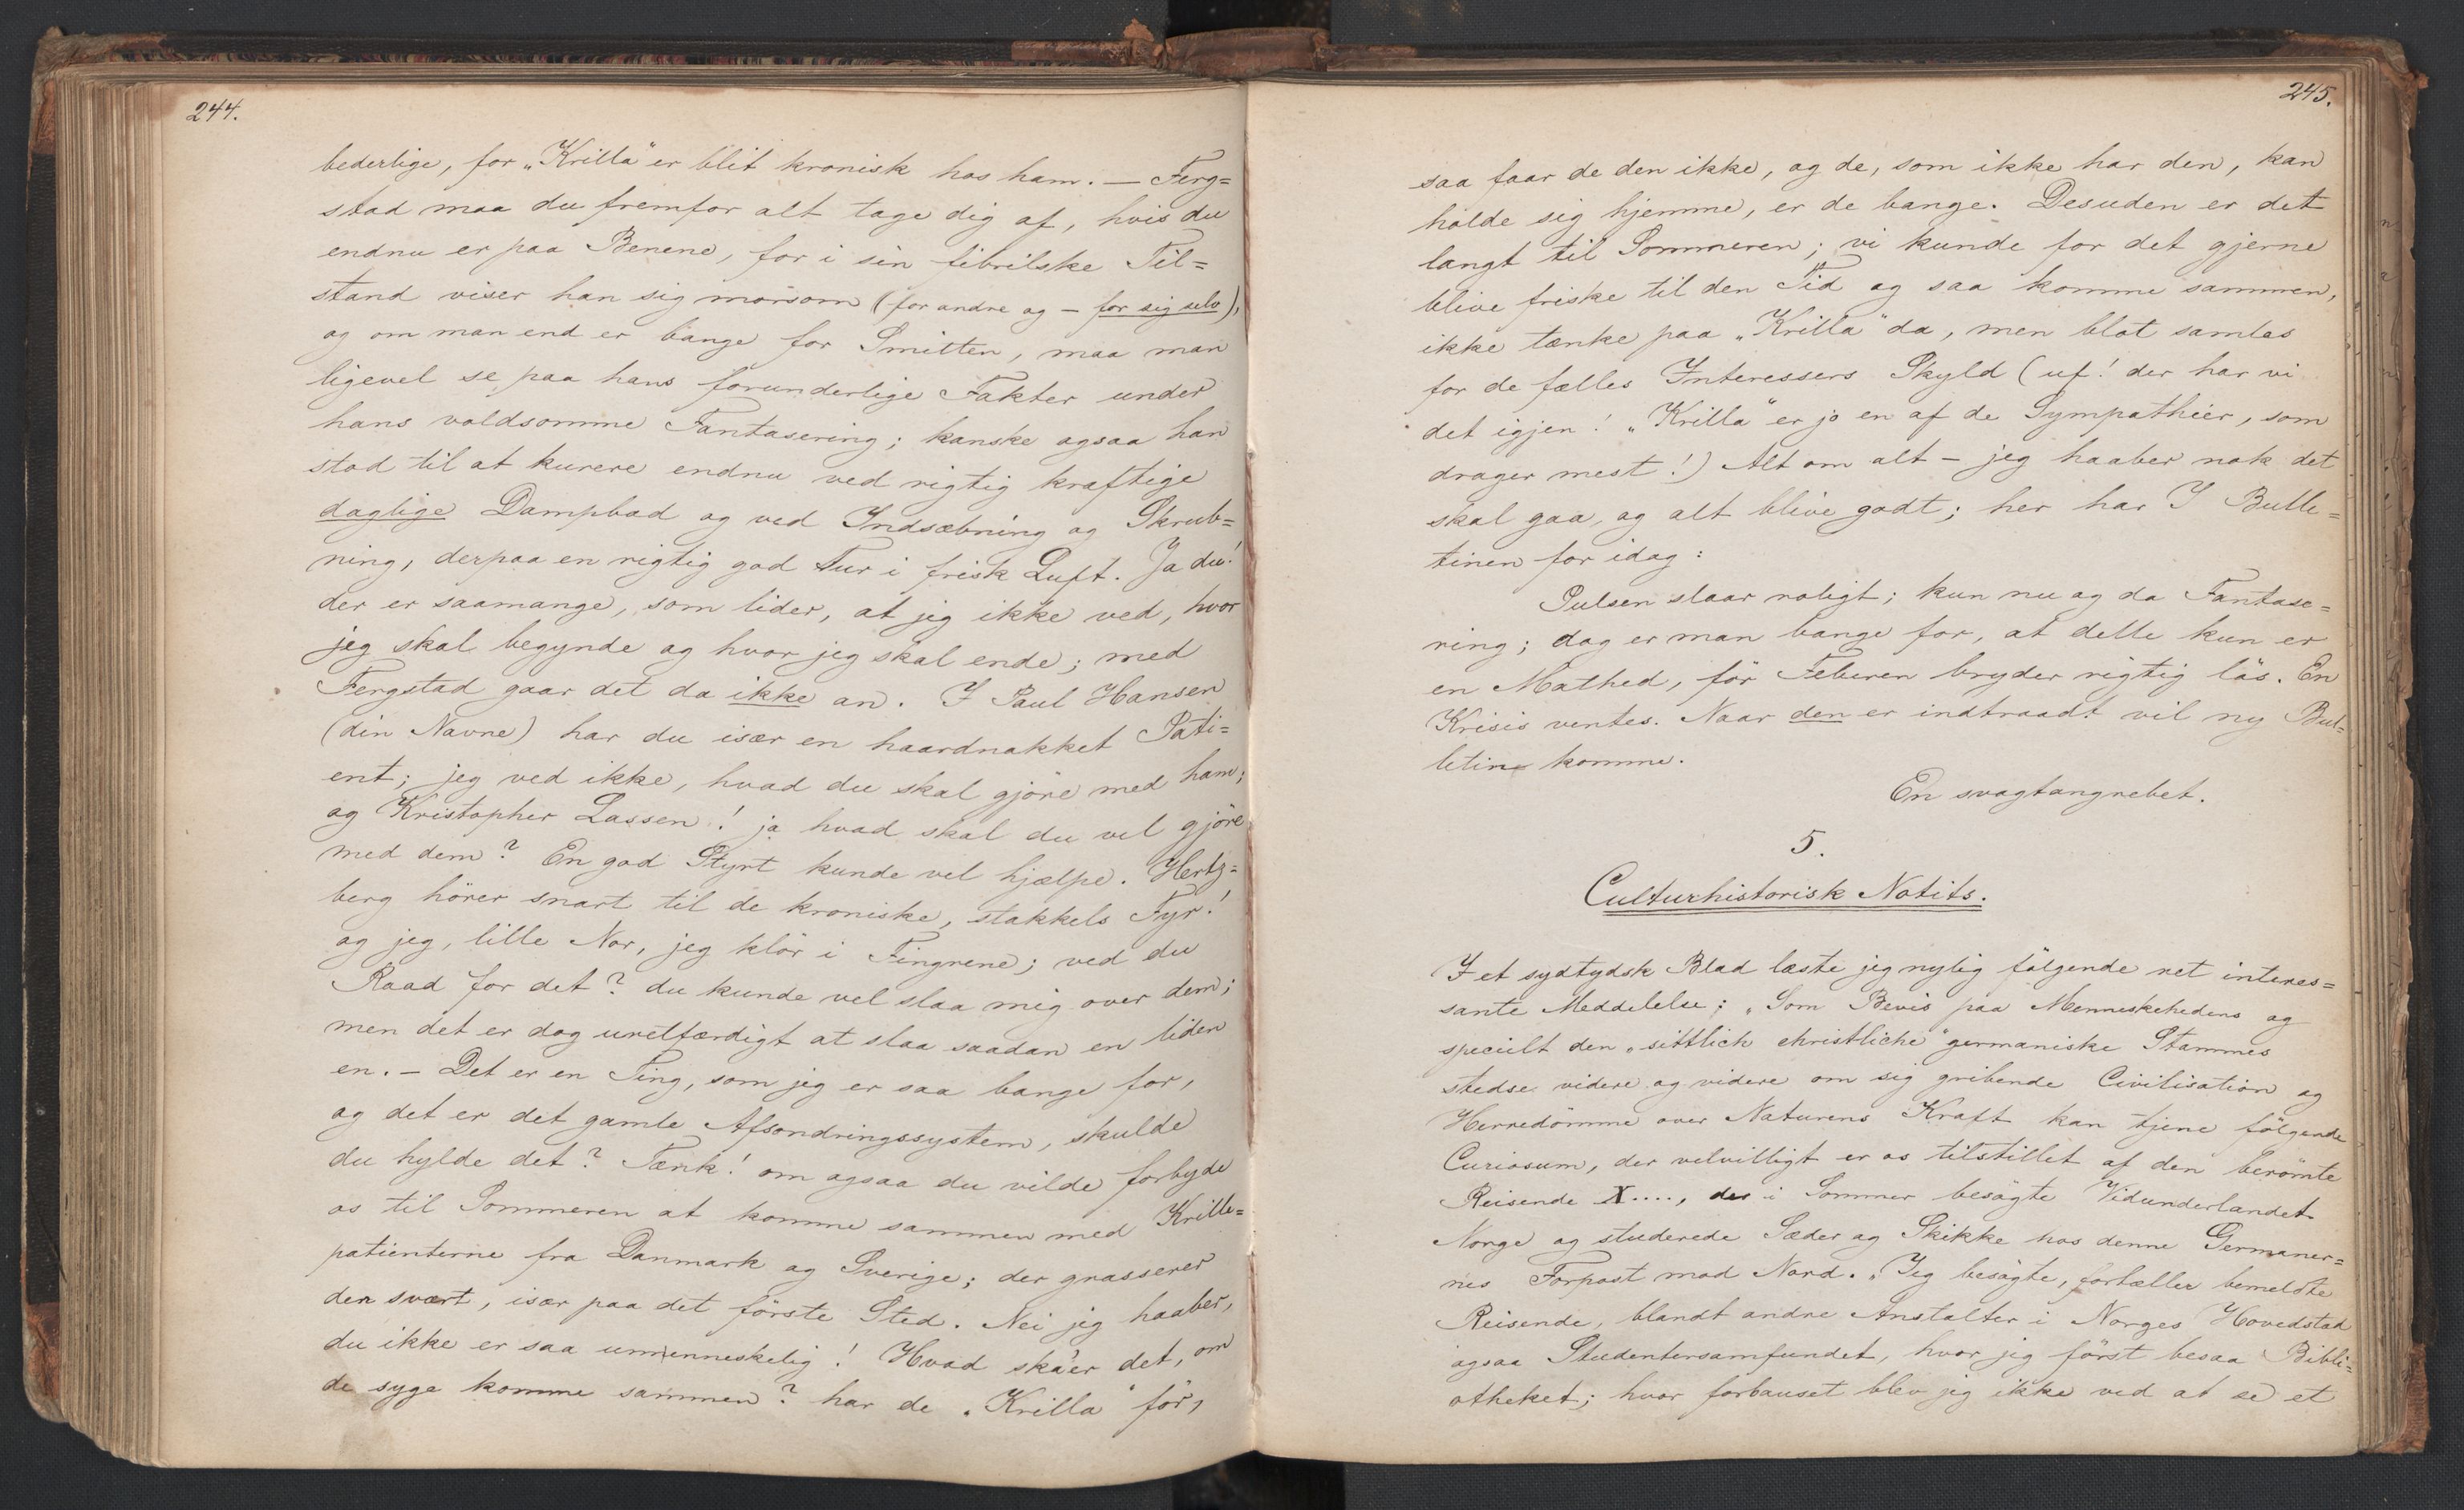 244.
bederlige, for „Krilla" er blit kronisk hos ham. — Ferg=
stad maa du fremfor alt tage dig af, hvis du
endnu er paa Benene, for i sin febrilske Til=
stand viser han sig morsom (for andre og — for sig selv),
og om man end er bange for Smitten, maa man
ligevel se paa hans forunderlige Fakter under
hans voldsomme Fantasering; kanske ogsaa han
stod til at kurere endnu ved rigtig kraftige
daglige Dampbad og ved Indsæbning og Skrub=
ning, derpaa en rigtig god Tur i frisk Luft. Ja du!
der er saamange, som lider, at jeg ikke ved, hvor
jeg skal begynde og hvor jeg skal ende; med
Fergstad gaar det da ikke an. I Paul Hansen
(din Navne) har du især en haardnakket Pati=
ent; jeg ved ikke, hvad du skal gjöre med ham;
og Kristopher Lassen! ja hvad skal du vel gjöre
med dem? En god Styrt kunde vel hjælpe. Hertz=
berg hörer snart til de kroniske, stakkels Fyr!
og jeg, lille Nor, jeg klör i Fingrene; ved du
Raad for det? du kunde vel slaa mig over dem;
men det er dog uretfærdigt at slaa saadan en liden
en. — Det er en Ting, som jeg er saa bange for,
og det er det gamle Afsondringssystem, skulde
du hylde det? Tænk! om ogsaa du vilde forbyde
os til Sommeren at komme sammen med Krille=
patienterne fra Danmark og Sverige; der grasserer
den svært, især paa det förste Sted. Nei jeg haaber,
du ikke er saa umenneskelig! Hvad skaer det, om
de syge komme sammen? har de „Krilla" för,
245.
saa faar de den ikke, og de, som ikke har den, kan
holde sig hjemme, er de bange. Desuden er det
langt til Sommeren; vi kunde for det gjerne
blive friske til den Tid og saa komme sammen,
ikke tænke paa „Krilla" da, men blot samles
for de fælles Interessers Skyld (uf! der har vi
det igjen! „Krilla" er jo en af de Sympathier, som
drager mest!) Alt om alt — jeg haaber nok det
skal gaa, og alt blive godt; her har I Bulle=
tinen for idag:
Pulsen slaar roligt; kun nu og da Fantase=
ring; dog er man bange for, at dette kun er
en Mathed, för Feberen bryder rigtig lös. En
Krisis ventes. Naar den er indtraadt vil ny Bul=
letin komme.
En svagtangrebet.
5.
Culturhistorisk Notits.
I et sydtydsk Blad læste jeg nylig fölgende ret interes=
sante Meddelelse; „Som Bevis paa Menneskehedens og
specielt den „sittlich christliche" germaniske Stammes
stedse videre og videre om sig gribende Civilisation og
Herredömme over Naturens Kraft kan tjene fölgende
Curiosum, der velvilligt er os tilstillet af den berömte
Reisende X...., der i Sommer besögte Vidunderlandet
Norge og studerede Sæder og Skikke hos denne Germaner=
nes Forpost mod Nord. „Jeg besögte, fortæller bemeldte
Reisende, blandt andre Anstalter i Norges Hovedstad
ogsaa Studentersamfundet, hvor jeg först besaa Bibli=
otheket; hvor forbauset blev jeg ikke ved at se et